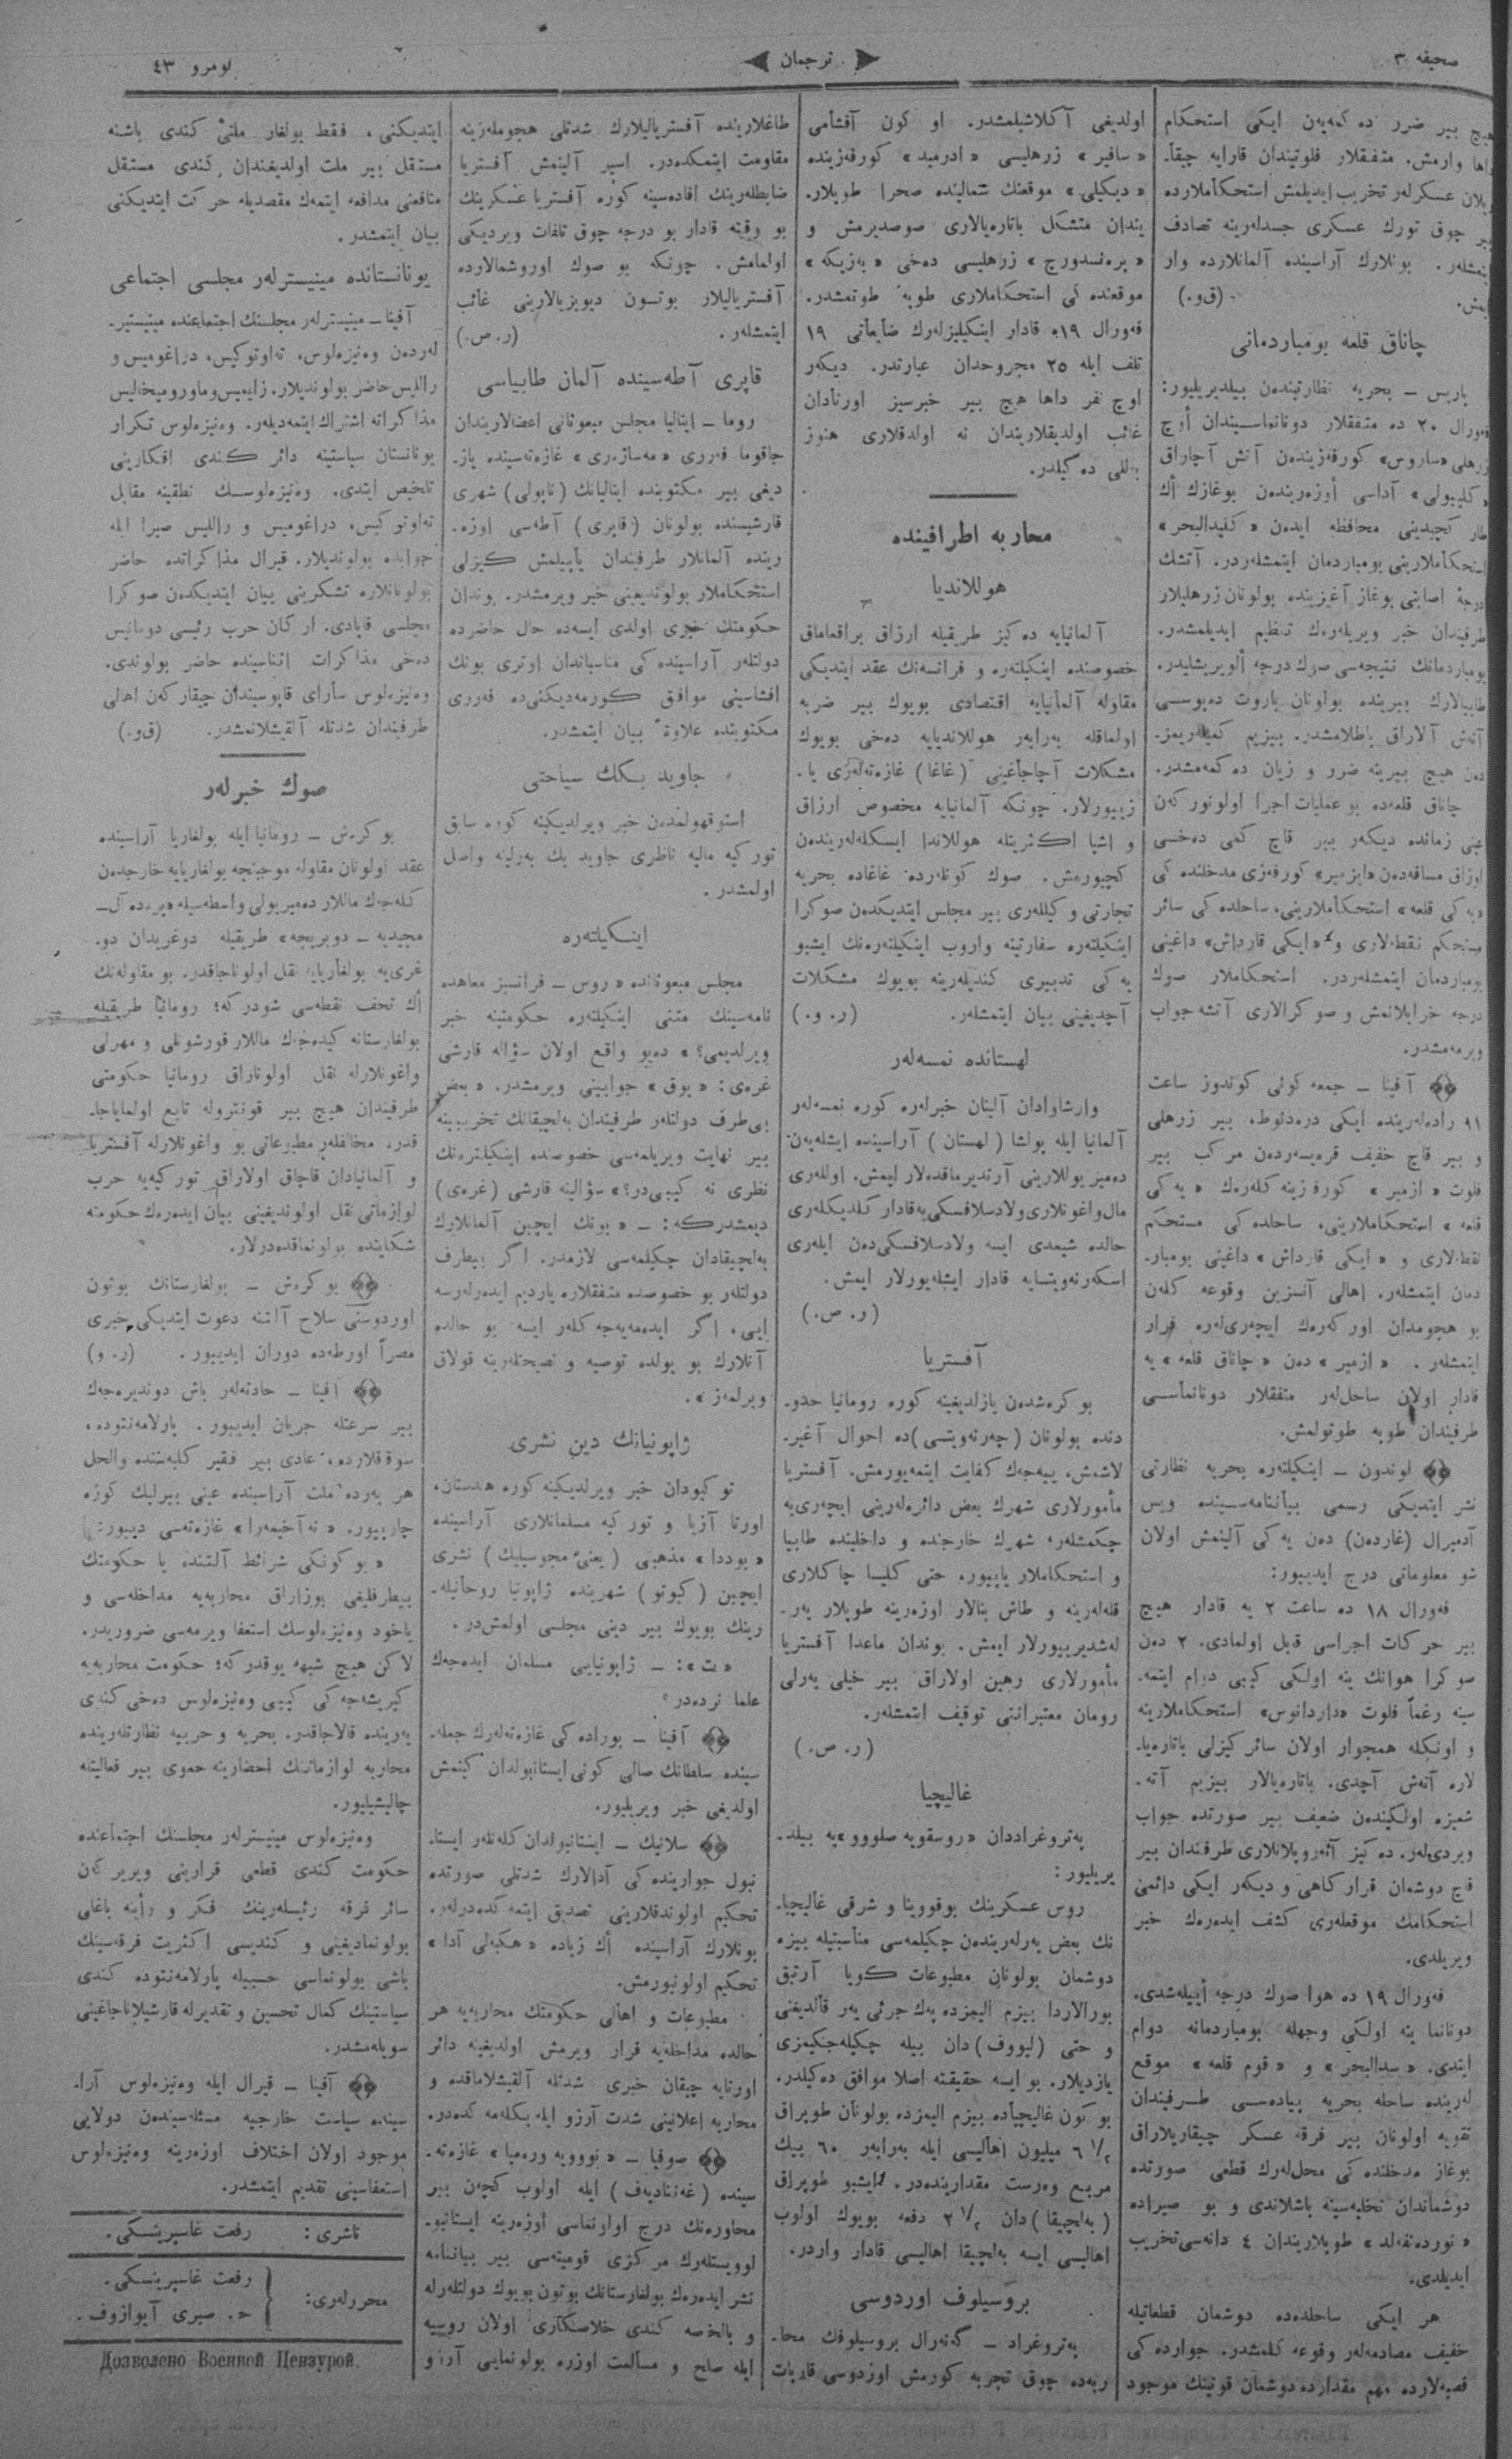 صحیفه ۳
ترجمان
نومرو ٤٣
هیچ بیر ضرر ده کمه‌یەن ایکی استحکام
داها وارمش. متفقلار فلوتیندان قارایه چیقا-
ریلان عسکرلەر تخریب ایدیلمش استحکاملارده
بیر چوق تورك عسکری جسدلەرینه تصادف
ایتمشلەر. بونلارك آراسینده آلمانلارده وار
ایمش. (ق‌و.)
چاناق قلعه بومباردمانی
پاریس – بحریه نظارتیندەن بیلدیریلیور:
فەورال ۲۰ ده متفقلار دونانماسیندان اوچ
زرهلی «ساروس» کورفەزیندەن آتش آچاراق
«کلیبولی» آداسی اوزەریندەن بوغازك اك
طار کچیدینی محافظه ایدەن «کلیدالبحر»
استحکاملارینی بومباردمان ایتمشلەردر. آتشك
درجهٔ اصابتی بوغاز آغیزینده بولونان زرهلیلار
طرفیندان خبر ویریلەرەك تنظیم ایدیلمشدر.
بومباردمانك نتیجەسی صوك درجه الویریشلیدر.
طابیالارك بیرینده بولونان باروت دەپوسی
آتش آلاراق پاطلامشدر. بیزیم کمیلەریمز-
دەن هیچ بیرینه ضرر و زیان ده کمەمشدر.
چاناق قلعەده بو عملیات اجرا اولونور کەن
عینی زمانده دیکەر بیر قاچ کمی دەخی
اوزاق مسافەدەن «ایزمیر» کورفەزی مدخلنده کی
«یه کی قلعه» استحکاملارینی، ساحلده کی سائر
مستحکم نقطەلاری و «ایکی قارداش» داغینی
بومباردمان ایتمشلەردر. استحکاملار صوك
درجه خرابلانمش و صوکرالاری آتشه جواب
ویرمەمشدر.
آفینا – جمعه کونی کوندوز ساعت
۱۱ رادەلەرینده ایکی درەدنوط، بیر زرهلی
و بیر قاچ خفیف قرەیسەردەن مرکب بیر
فلوت «ازمیر» کورفەزینه کلەرەك «یه کی
قلعه» استحکاملارینی، ساحلده کی مستحکم
نقطەلاری و «ایکی قارداش» داغینی بومبار-
دمان ایتمشلەر. اهالی آنسزین وقوعه کلەن
بو هجومدان اورکەرەك ایچەریلەره فرار
ایتمشلەر. «ازمیر» دەن «چاناق قلعه» یه
قادار اولان ساحل‌لەر متفقلار دونانماسی
طرفیندان طوپه طوتولمش.
لوندون – اینکیلتەره بحریه نظارتی
نشر ایتدیکی رسمی بیاننامەسینده ویس
آدمیرال (غاردەن) دەن یه کی آلینمش اولان
شو معلوماتی درج ایدییور:
فەورال ۱۸ ده ساعت ۲ یه قادار هیچ
بیر حرکات اجراسی قابل اولمادی. ۲ دەن
صوکرا هوانك ینه اولکی کیبی دوام ایتمە-
سینه رغماً فلوت «داردانوس» استحکاملارینه
و اونکله همجوار اولان سائر کیزلی باتارەیا-
لاره آتەش آچدی. باتارەیالار بیزیم آتە-
شمیزه اولکیندەن ضعیف بیر صورتده جواب
ویردیلەر. ده کیز آئەروپلانلاری طرفندان بیر
قاچ دوشمان قرارکاهی و دیکەر ایکی دائمی
استحکامك موقعلەری کشف ایدەرەك خبر
ویریلدی.
فەورال ۱۹ ده هوا صوك درجه اییلەشدی.
دونانما ینه اولکی وجهله بومباردمانه دوام
ایتدی. «سدالبحر» و «قوم قلعه» موقع
لەرینده ساحله بحریه پیادەسی طرفیندان
تقویه اولونان بیر فرقه عسکر چیقاریلاراق
بوغاز مدخلنده کی محل‌لەرك قطعی صورتده
دوشماندان تخلیەسینه باشلاندی و بو صیراده
«نوردەنفەلد» طوپلاریندان ٤ دانەسی تخریب
ایدیلدی.
هر ایکی ساحلدەده دوشمان قطعاتیله
خفیف مصادمەلەر وقوعه کلمشدر. جوارده کی
قصبەلارده مهم مقدارده دوشمان قوتینك موجود
اولدیغی آکلاشیلمشدر. او کون آقشامی
«سافیر» زرهلیسی «ادرمید» کورفەزینده
«دیکیلی» موقعنك شمالینده صحرا طوپلار-
یندان متشکل باتارەیالاری صوصدیرمش و
«پرەنسدورج» زرهلیسی دەخی «بەزیکه»
موقعنده کی استحکاملاری طوپه طوتمشدر.
فەورال ۱۹ه قادار اینکیلیزلەرك ضایعاتی ۱۹
تلف ایله ۲۵ مجروحدان عبارتدر. دیکەر
اوچ نفر داها هیچ بیر خبرسیز اورتادان
غائب اولدیقلاریندان نه اولدقلاری هنوز
بللی ده کیلدر.
محاربه اطرافینده
هوللاندیا
آلمانیایه ده کیز طریقیله ارزاق براقماماق
خصوصنده اینکیلتەره و فرانسەنك عقد ایتدیکی
مقاوله آلمانیایه اقتصادی بویوك بیر ضربه
اولماقله بەرابەر هوللاندیایه دەخی بویوك
مشکلات آچاجاغینی (غاغا) غازەتەلەری یا-
زییورلار. چونکه آلمانیایه مخصوص ارزاق
و اشیا اکثریتله هوللاندا ایسکلەلەریندەن
کچیورمش. صوك کونلەرده غاغاده بحریه
تجارتی وکیللەری بیر مجلس ایتدیکدەن صوکرا
اینکیلتەره سفارتینه واروب اینکیلتەرەنك ایشبو
یه کی تدبیری کندیلەرینه بویوك مشکلات
آچدیغینی بیان ایتمشلەر. (ر. و.)
لهستانده نمسەلەر
وارشاوادان آلینان خبرلەره کوره نمسەلەر
آلمانیا ایله پولشا (لهستان) آراسینده ایشلەیەن
دەمیر یوللارینی آرتدیرماقدەلار ایمش. اوللەری
مال واغونلاری ولادسلافسکی‌یه قادار کلدیکلەری
حالده شیمدی ایسه ولادسلافسکی‌دەن ایلەری
اسکەرنەویتسایه قادار ایشلەیورلار ایمش.
(ر. ص.)
آفستریا
بوکرەشدەن یازلدیغینه کوره رومانیا حدو-
دنده بولونان (چەرنەویتسی) ده احوال آغیر-
لاشمش، ییەجەك کفایت ایتمەیورمش. آفستریا
مأمورلاری شهرك بعض دائرەلەرینی ایچەری‌یه
چکمشلەر، شهرك خارجنده و داخلینده طابیا
و استحکاملار یاپییور، حتی کلیسا چاکلاری
قلەلەرینه و طاش بنالار اوزەرینه طوپلار یەر-
لەشدیرییورلار ایمش. بوندان ماعدا آفستریا
مأمورلاری رهین اولاراق بیر خیلی یەرلی
رومان معتبراننی توقیف ایتمشلەر.
(ر. ص.)
غالیچیا
پەتروغراددان «روسقویه صلووو»یه بیلد-
یریلیور:
روس عسکرینك بوقووینا و شرقی غالیچیا-
نك بعض یەرلەریندەن چکیلمەسی مناسبتیله بیزه
دوشمان بولونان مطبوعات کویا آرتیق
بورالاردا بیزیم الیمزده پەك جزئی یەر قالدیغنی
و حتی (لیووف) دان بیله چکیلەجکیمزی
یازدیلار. بو ایسه حقیقته اصلا موافق ده کیلدر.
بو کون غالیچیاده بیزیم الیمزده بولونان طوپراق
٦ ١/٢ میلیون اهالیسی ایله بەرابەر ٦۰ بیك
مربع وەرست مقدارینده‌در. ایشبو طوپراق
(بەلچیقا) دان ٢ ١/٢ دفعه بویوك اولوب
اهالیسی ایسه بەلچیقا اهالیسی قادار واردر.
بروسیلوف اوردوسی
پەتروغراد – گەنەرال بروسیلوفك محا-
ربەده چوق تجربه کورمش اوردوسی قارپات
طاغلارینده آفستریالیلارك شدتلی هجوملەرینه
مقاومت ایتمکدەدر. اسیر آلینمش آفستریا
ضابطلەرینك افادەسینه کوره آفستریا عسکرینك
بو وقته قادار بو درجه چوق تلفات ویردیکی
اولمامش. چونکه بو صوك اوروشمالارده
آفستریالیلار بوتون دیویزیالارینی غائب
ایتمشلەر. (ر. ص.)
قاپری آطەسینده آلمان طابیاسی
روما – ایتالیا مجلس مبعوثانی اعضالاریندان
جاقوما فەرری «مەساژەری» غازەتەسینده یاز-
دیغی بیر مکتوبنده ایتالیانك (ناپولی) شهری
قارشیسنده بولونان (قاپری) آطەسی اوزە-
رینده آلمانلار طرفیندان یاپیلمش کیزلی
استحکاملار بولوندیغینی خبر ویرمشدر. بوندان
حکومتك خبری اولدی ایسەده حال حاضرده
دولتلەر آراسینده کی مناسباتدان اوتری بونك
افشاسینی موافق کورمەدیکنی‌ده فەرری
مکتوبنده علاوةً بیان ایتمشدر.
جاوید بکك سیاحتی
استوقهولمدەن خبر ویرلدیکینه کوره سابق
تورکیه مالیه ناظری جاوید بك بەرلینه واصل
اولمشدر.
اینکیلتەره
مجلس مبعوثانده «روس – فرانسیز معاهده
نامەسینك متنی اینکیلتەره حکومتینه خبر
ویرلدیمی؟» دەیو واقع اولان سؤاله قارشی
غرەی: «یوق» جوابینی ویرمشدر. «بعض
بی‌طرف دولتلەر طرفیندان بەلچیقانك تخریبینه
بیر نهایت ویریلمەسی خصوصنده اینکیلتەرەنك
نظری نه کیبی‌در؟» سؤالینه قارشی (غرەی)
دیمشدرکه: – «بونك ایچین آلمانلارك
بەلچیقادان چکیلمەسی لازمدر. اگر بیطرف
دولتلەر بو خصوصده متفقلاره یاردیم ایدەرلەرسه
ایی، اگر ایدەمەیەجەکلەر ایسه بو حالده
آنلارك بو یولده توصیه و نصیحتلەرینه قولاق
ویرلمەز».
ژاپونیانك دین نشری
توکیودان خبر ویرلدیکینه کوره هندستان،
اورتا آزیا و تورکیه مسلمانلاری آراسینده
«بوددا» مذهبی (یعنی مجوسیلیك) نشری
ایچین (کیوتو) شهرینده ژاپونیا روحانیلە-
رینك بویوك بیر دینی مجلسی اولمش‌در.
«ت»: – ژاپونیایی مسلمان ایدەجەك
علما نردەدر؟
آفینا – بورادە کی غازەتەلەرك جمله-
سینده سلطانك صالی کونی ایستانبولدان کیتمش
اولدیغی خبر ویریلیور.
سلانیك – ایستانبولدان کلەنلەر ایستا-
نبول جوارینده کی آدالارك شدتلی صورتده
تحکیم اولوندقلارینی تصدیق ایتمه کدەدرلەر.
بونلارك آراسینده اك زیاده «هکبەلی آدا»
تحکیم اولونیورمش.
مطبوعات و اهالی حکومتك محاربەیه هر
حالده مداخلەیه قرار ویرمش اولدیغینه دائر
اورتایه چیقان خبری شدتله آلقیشلاماقده و
محاربه اعلانینی شدت آرزو ایله بکلەمه کدەدر.
صوفیا – «نوویه ورەمیا» غازەتە-
سینده (غەننادیەف) ایله اولوب کچەن بیر
محاورەنك درج اولونماسی اوزەرینه ایستانبو-
لوویستلەرك مرکزی قومیتەسی بیر بیاننامه
نشر ایدەرەك بولغارستانك بوتون بویوك دولتلەرله
و بالخاصه کندی خلاصکاری اولان روسیه
ایله صلح و مسالمت اوزره بولونمایی آرزو
ایتدیکنی، فقط بولغار ملتی کندی باشنه
مستقل بیر ملت اولدیغندان کندی مستقل
منافعنی مدافعه ایتمەك مقصدیله حرکت ایتدیکنی
بیان ایتمشدر.
یونانستانده مینیسترلەر مجلسی اجتماعی
آفینا – مینیسترلەر مجلسنك اجتماعنده مینیستیر-
لەردەن وەنیزەلوس، تەاوتوکیس، دراغومیس و
راللیس حاضر بولوندیلار. زایمیس و ماورومیخالیس
مذاکراته اشتراك ایتمەدیلەر. وەنیزەلوس تکرار
یونانستان سیاستینه دائر کندی افکارینی
تلخیص ایتدی. وەنیزەلوسك نطقینه مقابل
تەاوتوکیس، دراغومیس و راللیس صیرا ایله
جوابده بولوندیلار. قیرال مذاکراتده حاضر
بولونانلاره تشکرینی بیان ایتدیکدەن صوکرا
مجلسی قاپادی. ارکان حرب رئیسی دوسمانیس
دەخی مذاکرات اثناسینده حاضر بولوندی.
وەنیزەلوس سارای قاپوسیندان چیقارکەن اهالی
طرفیندان شدتله آلقیشلانمشدر. (ق‌و.)
صوك خبرلەر
بوکرەش – رومانیا ایله بولغاریا آراسینده
عقد اولونان مقاوله موجبنجه بولغاریایه خارجدەن
کلەجەك ماللار دەمیر یولی واسطەسیله «پرەده آل –
مجیدیه – دوبریجه» طریقیله دوغریدان دو-
غری‌یه بولغاریایه نقل اولوناجاقدر. بو مقاولەنك
اك تحف نقطەسی شودرکه؛ رومانیا طریقیله
بولغارستانه کیدەجەك ماللار قورشونلی و مهرلی
واغونلارله نقل اولوناراق رومانیا حکومتی
طرفیندان هیچ بیر قونترولە تابع اولمایاجا-
قدر. مخالفلەر مطبوعاتی بو واغونلارله آفستریا
و آلمانیادان قاچاق اولاراق تورکیەیه حرب
لوازماتی نقل اولوندیغینی بیان ایدەرەك حکومته
شکایتده بولونماقدەدرلار.
بوکرەش – بولغارستانك بوتون
اوردوسنی سلاح آلتنه دعوت ایتدیکی خبری
مصراً اورطەده دوران ایدییور. (ر. و)
آفینا – حادثەلەر باش دوندیرەجەك
بیر سرعتله جریان ایدییور. پارلامەنتوده،
سوقاقلارده، عادی بیر فقیر کلبەسنده والحاصل
هر یەرده ملت آراسینده عینی بیرلیك کوزه
چارپییور. «نەآ خیمەرا» غازەتەسی دییور:
«بو کونکی شرائط آلتنده یا حکومتك
بیطرفلیغی بوزاراق محاربەیه مداخلەسی و
یاخود وەنیزەلوسك استعفا ویرمەسی ضروریدر.
لاکن هیچ شبهه یوقدرکه؛ حکومت محاربەیه
کیریشەجه کی کیبی وەنیزەلوس دەخی کندی
یەرینده قالاجاقدر. بحریه و حربیه نظارتلەرینده
محاربه لوازماتینك احضارینه حموی بیر فعالیتله
چالیشیلیور.
وەنیزەلوس مینیسترلەر مجلسنك اجتماعنده
حکومت کندی قطعی قرارینی ویریرکەن
سائر فرقه رئیسلەرینك فکر و رأینه باغلی
بولونمادیغینی و کندیسی اکثریت فرقەسینك
باشی بولونماسی حسبیله پارلامەنتوده کندی
سیاستینك کمال تحسین و تقدیرله قارشیلاناجاغینی
سویلەمشدر.
آفینا – قیرال ایله وەنیزەلوس آرا-
سینده سیاست خارجیه مسئلەسیندەن دولایی
موجود اولان اختلاف اوزەرینه وەنیزەلوس
استعفاسینی تقدیم ایتمشدر.
ناشری: رفعت غاسپرینسکی.
محررلەری: رفعت غاسپرینسکی.
ح. صبری آیوازوف.
Дозволено Военной Цензурой.